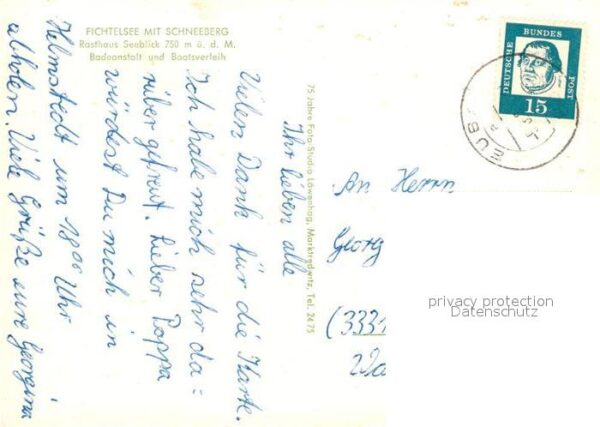 FICHTELSEE MIT SCHNEEBERG
Rasthaus Seeblick 750 m ü. d. M.
Badeanstalt und Bootsverleih
Ihr lieben alle
Vielen Dank für die Karte.
Ich habe mich sehr da=
rüber gefreut. Lieber Pappa
würdest Du mich in
Helmstedt um 18°° Uhr
abholen. Viele Grüße eure Georgina
75 Jahre Foto-Studio Löwenhag, Marktredwitz, Tel. 2475
DEUTSCHE BUNDESPOST
15
An Herrn
Georg
(3331
Wa
privacy protection
Datenschutz